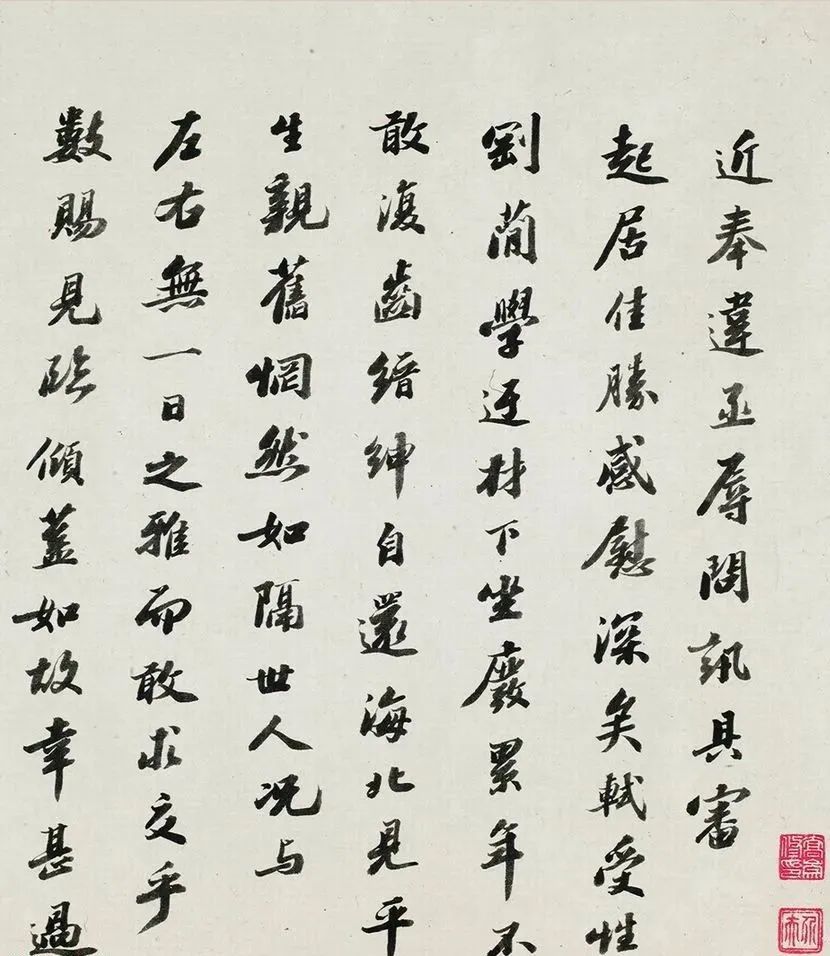 近奉違亟辱問訊具審
起居佳勝感慰深矣軾受性
剛簡學迂材下坐廢累年不
敢復齒縉紳自還海北見平
生親舊惘然如隔世人況与
左右無一日之雅而敢求交乎
數賜見臨傾蓋如故幸甚過